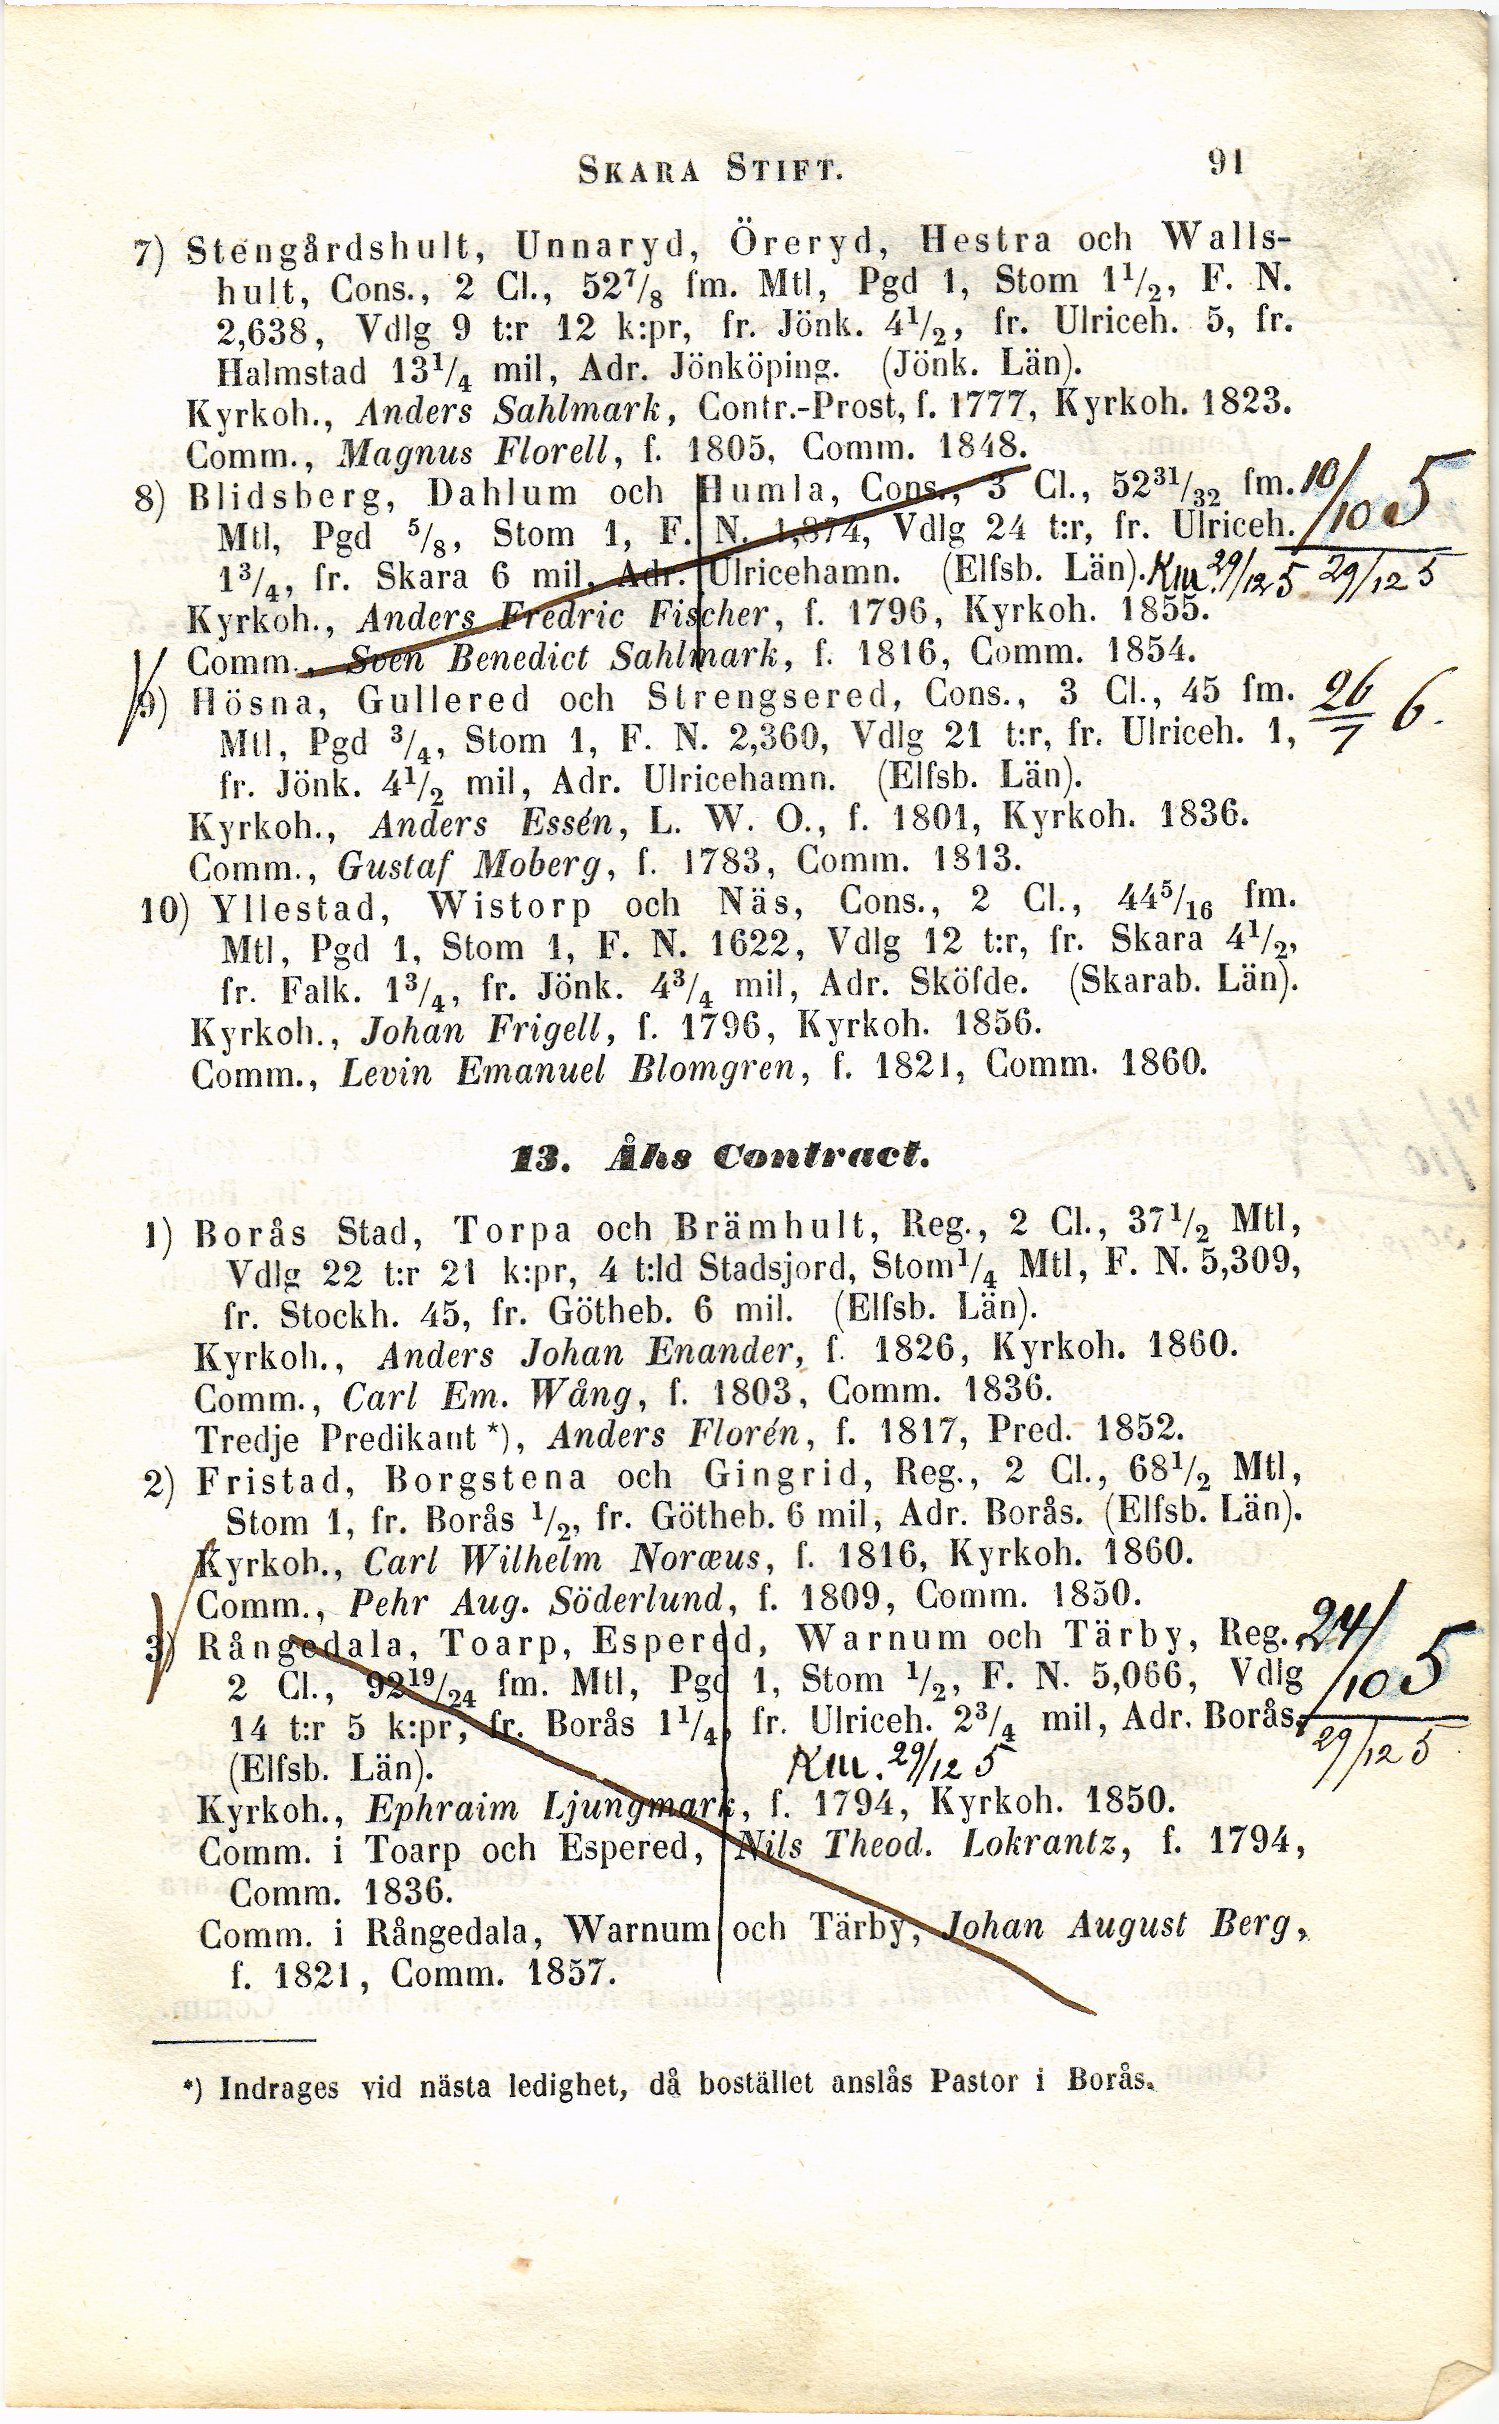 SKARA STIFT. 91
7) Stengårdshult, Unnaryd, Öreryd, Hestra och Walls-
hult, Cons., 2 Cl., 52⁷/₈ fm. Mtl, Pgd 1, Stom 1¹/₂, F. N.
2,638, Vdlg 9 t:r 12 k:pr, fr. Jönk. 4¹/₂, fr. Ulriceh. 5, fr.
Halmstad 13¹/₄ mil, Adr. Jönköping. (Jönk. Län).
Kyrkoh., Anders Sahlmark, Contr.-Prost, f. 1777, Kyrkoh. 1823.
Comm., Magnus Florell, f. 1805, Comm. 1848.
8) Blidsberg, Dahlum och Humla, Cons., 3 Cl., 52³¹/₃₂ fm. 10/10 5
Mtl, Pgd ⁵/₈, Stom 1, F. N. 1,874, Vdlg 24 t:r, fr. Ulriceh.
1³/₄, fr. Skara 6 mil, Adr. Ulricehamn. (Elfsb. Län). Km. 29/12 5 29/12 5
Kyrkoh., Anders Fredric Fischer, f. 1796, Kyrkoh. 1855.
Comm., Sven Benedict Sahlmark, f. 1816, Comm. 1854.
9) Hösna, Gullered och Strengsered, Cons., 3 Cl., 45 fm. 26/7 6.
Mtl, Pgd ³/₄, Stom 1, F. N. 2,360, Vdlg 21 t:r, fr. Ulriceh. 1,
fr. Jönk. 4¹/₂ mil, Adr. Ulricehamn. (Elfsb. Län).
Kyrkoh., Anders Essén, L. W. O., f. 1801, Kyrkoh. 1836.
Comm., Gustaf Moberg, f. 1783, Comm. 1813.
10) Yllestad, Wistorp och Näs, Cons., 2 Cl., 44⁵/₁₆ fm.
Mtl, Pgd 1, Stom 1, F. N. 1622, Vdlg 12 t:r, fr. Skara 4¹/₂,
fr. Falk. 1³/₄, fr. Jönk. 4³/₄ mil, Adr. Sköfde. (Skarab. Län).
Kyrkoh., Johan Frigell, f. 1796, Kyrkoh. 1856.
Comm., Levin Emanuel Blomgren, f. 1821, Comm. 1860.
13. Åhs Contract.
1) Borås Stad, Torpa och Brämhult, Reg., 2 Cl., 37¹/₂ Mtl,
Vdlg 22 t:r 21 k:pr, 4 t:ld Stadsjord, Stom ¹/₄ Mtl, F. N. 5,309,
fr. Stockh. 45, fr. Götheb. 6 mil. (Elfsb. Län).
Kyrkoh., Anders Johan Enander, f. 1826, Kyrkoh. 1860.
Comm., Carl Em. Wång, f. 1803, Comm. 1836.
Tredje Predikant *), Anders Florén, f. 1817, Pred. 1852.
2) Fristad, Borgstena och Gingrid, Reg., 2 Cl., 68¹/₂ Mtl,
Stom 1, fr. Borås ¹/₂, fr. Götheb. 6 mil, Adr. Borås. (Elfsb. Län).
Kyrkoh., Carl Wilhelm Noræus, f. 1816, Kyrkoh. 1860.
Comm., Pehr Aug. Söderlund, f. 1809, Comm. 1850.
3) Rångedala, Toarp, Espered, Warnum och Tärby, Reg., 24/10 5
2 Cl., 92¹⁹/₂₄ fm. Mtl, Pgd 1, Stom ¹/₂, F. N. 5,066, Vdlg
14 t:r 5 k:pr, fr. Borås 1¹/₄, fr. Ulriceh. 2³/₄ mil, Adr. Borås. 29/12 5
(Elfsb. Län). Km. 29/12 5
Kyrkoh., Ephraim Ljungmark, f. 1794, Kyrkoh. 1850.
Comm. i Toarp och Espered, Nils Theod. Lokrantz, f. 1794,
Comm. 1836.
Comm. i Rångedala, Warnum och Tärby, Johan August Berg,
f. 1821, Comm. 1857.
*) Indrages vid nästa ledighet, då bostället anslås Pastor i Borås.